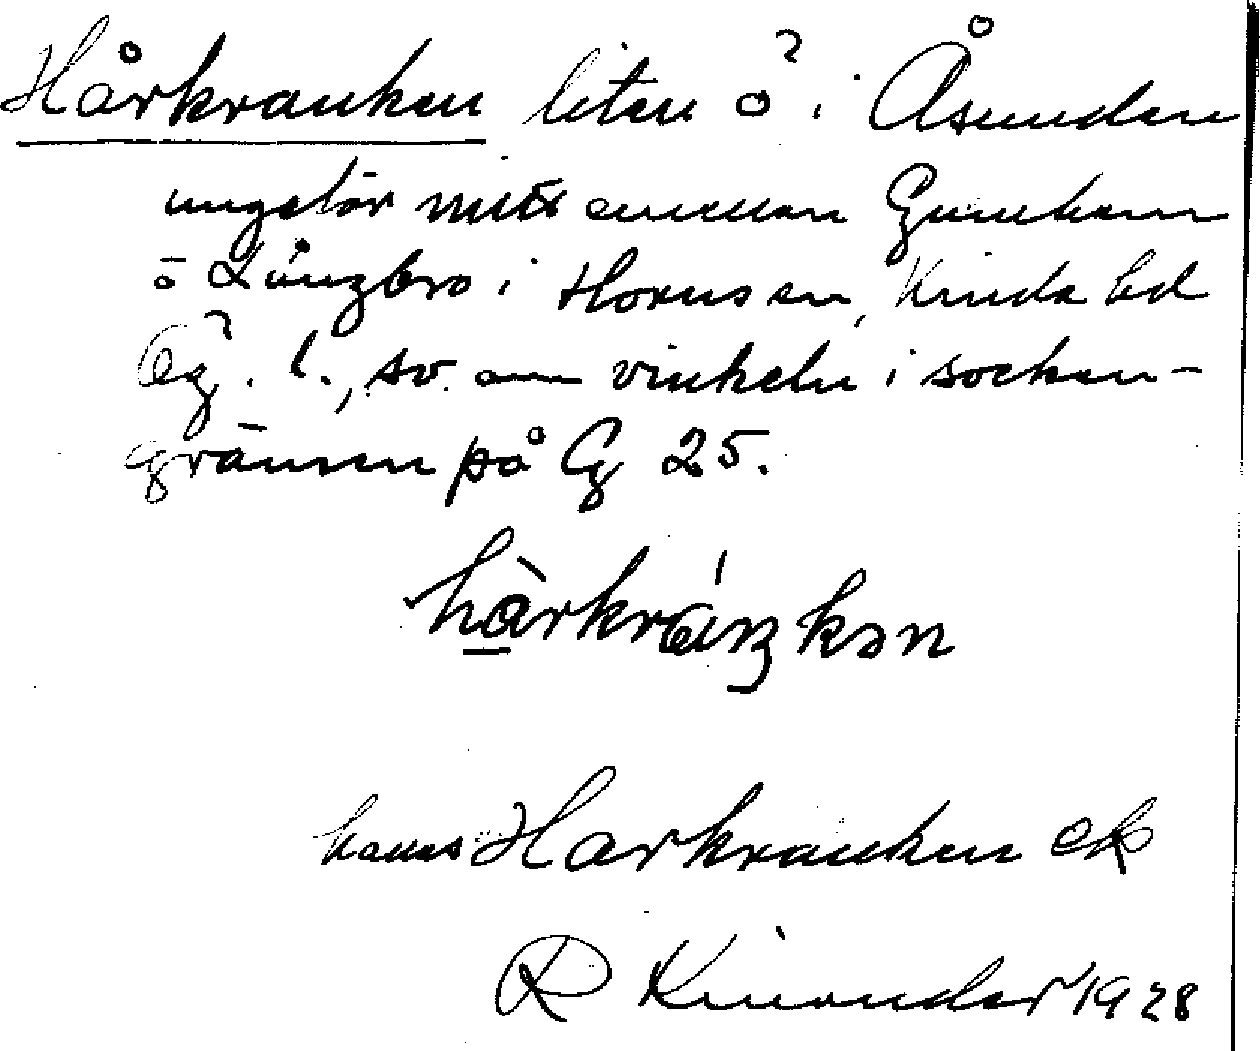 Hårkranken liten ö i Åsunden
ungefär mitt emellan Gunnhamn
o Långbro i Horns sn, Kinda hd
Ög. l., sv. om vinkeln i socken-
gränsen på Eg 25.
hàrkráŋkən
kanns Harkranken ek
R Kinander 1928